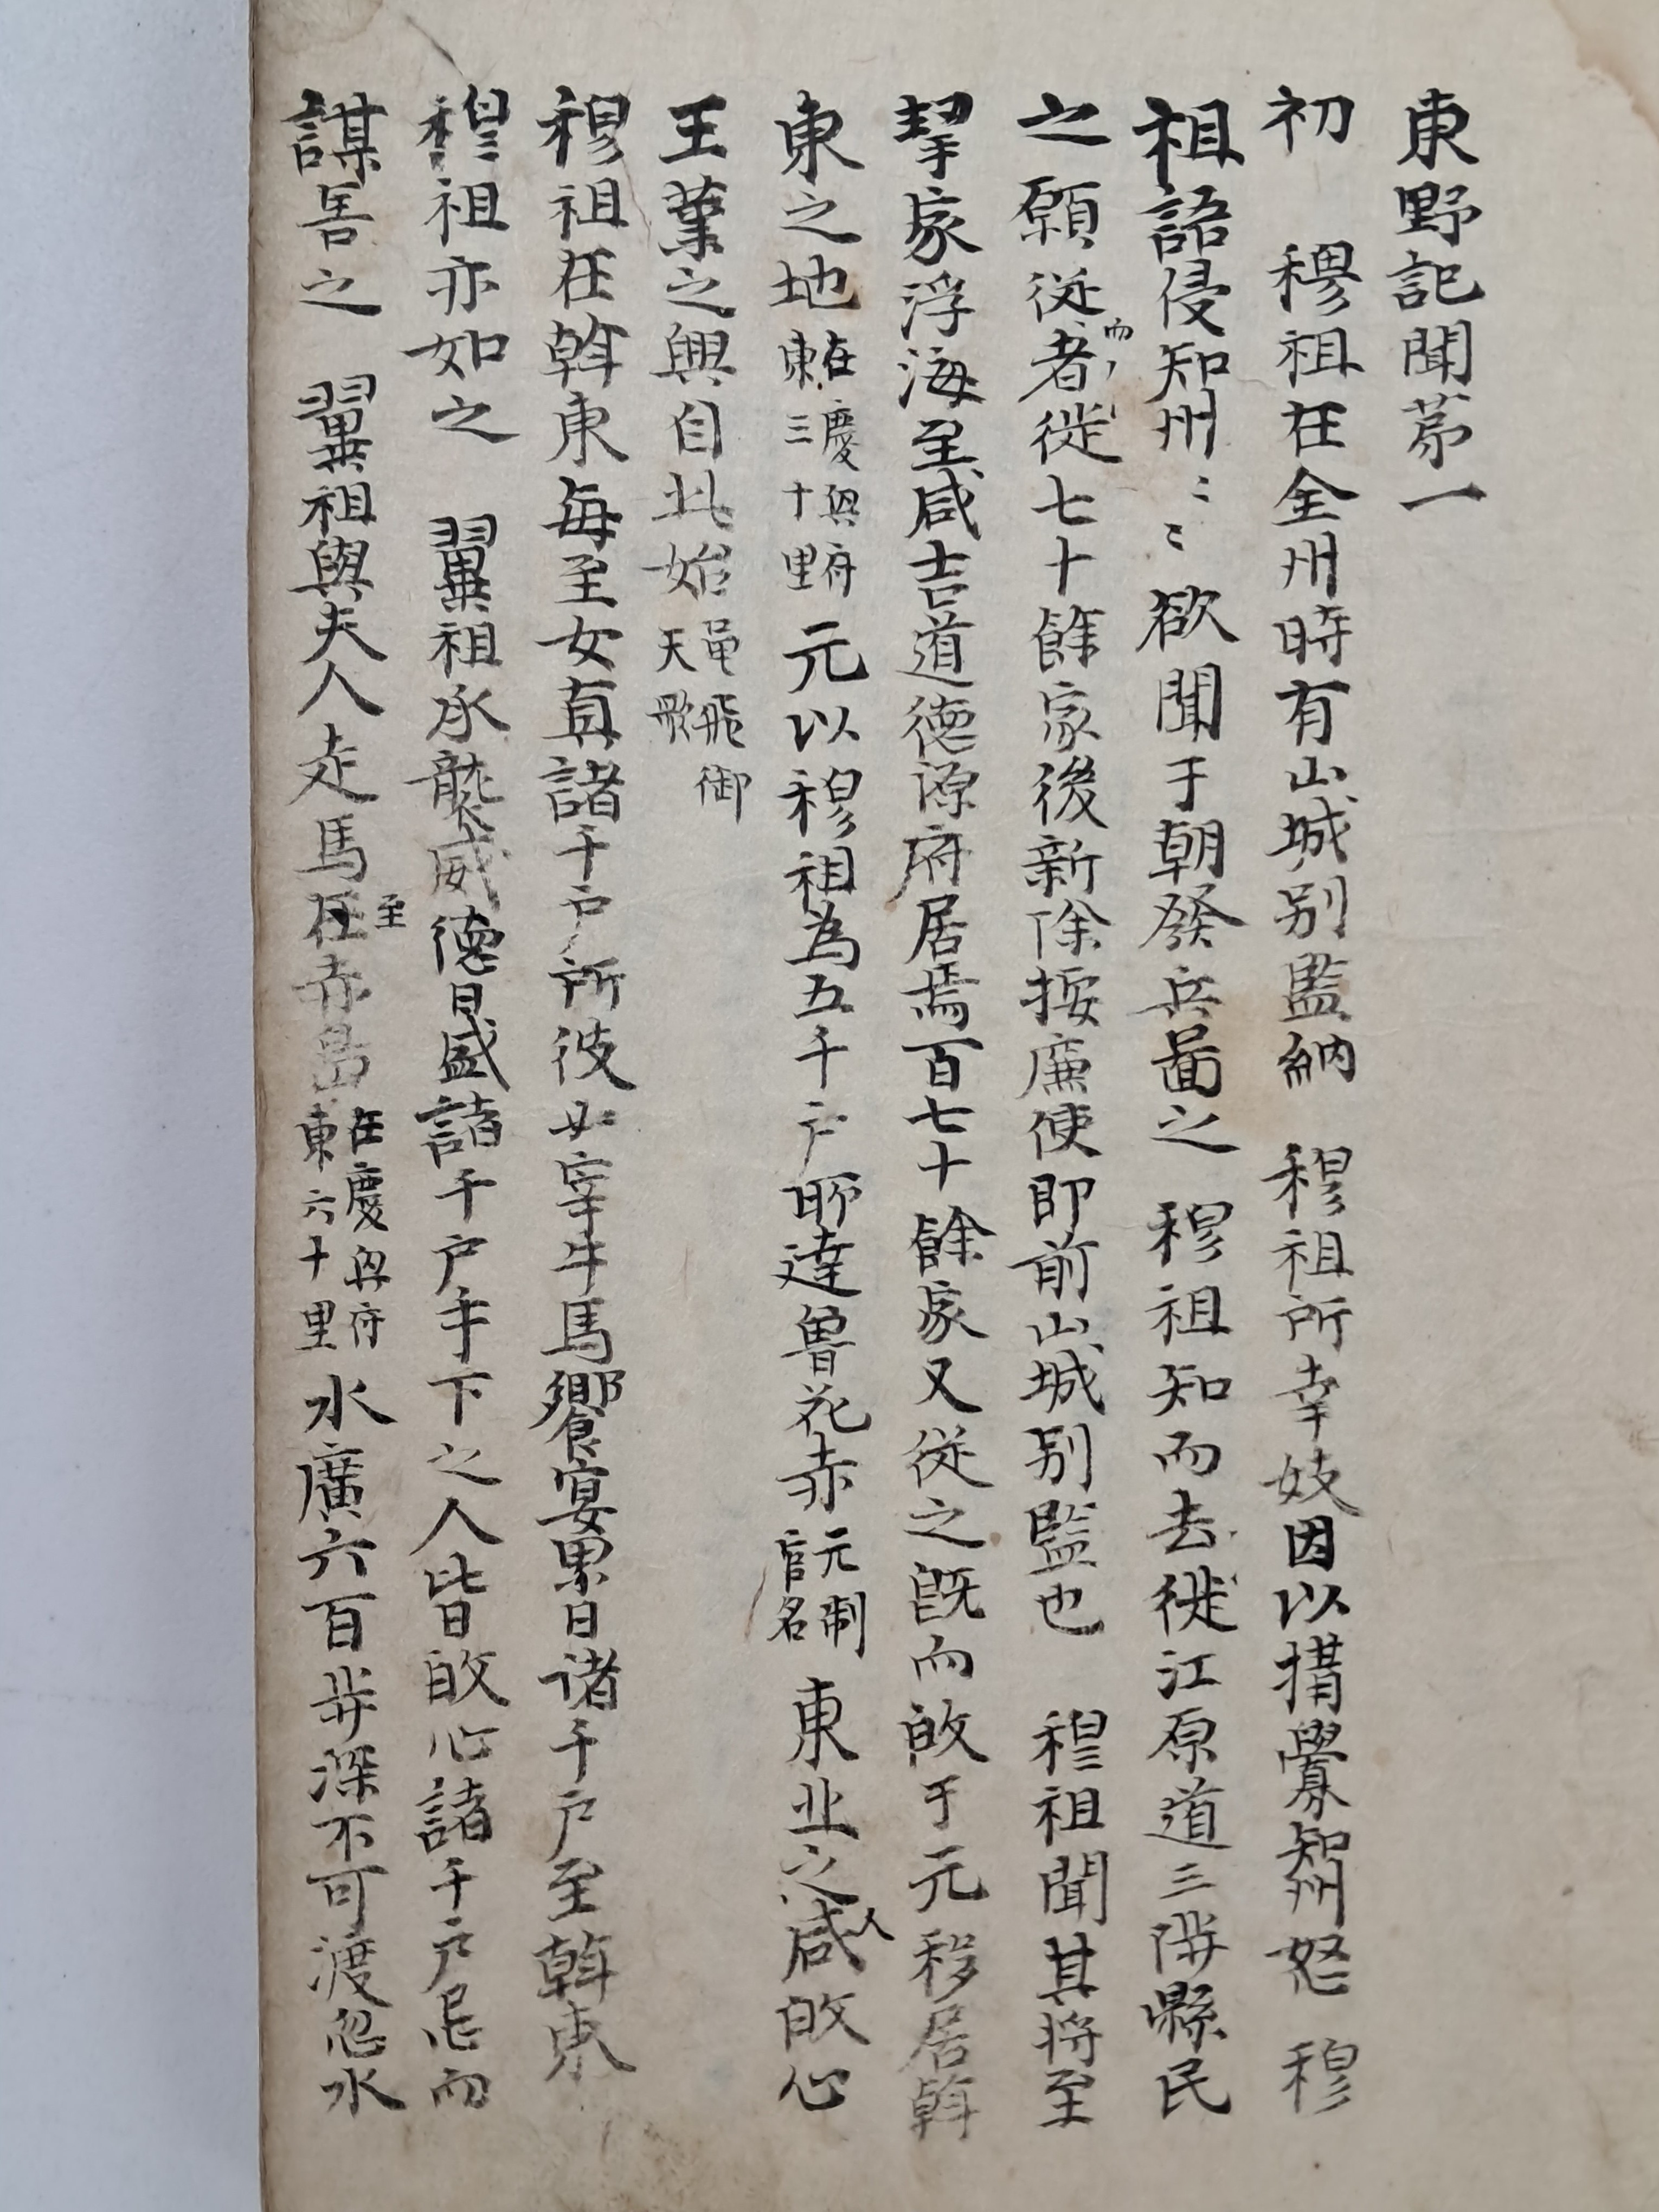 東野記聞苐一
初 穆祖在全州時有山城别監納 穆祖所幸妓因以搆釁知州怒 穆
祖語侵知州〻〻欲聞于朝發兵啚之 穆祖知而去徙江原道三陟縣民
之願從而者徙七十餘家後新除按廉使即前山城别監也 穆祖聞其将至
挈家浮海至咸吉道德源府居焉百七十餘家又從之既而㱕于元移居斡
東之地在慶興府東三十里元以穆祖為五千户所達魯花赤元制官名東北之人咸㱕心
王業之興自此始 龍飛御天歌
穆祖在斡東每至女真諸千户所彼必宰牛馬饗宴累日诸千户至斡東
穆祖亦如之 翼祖承襲威德日盛諸千户手下之人皆㱕心諸千户忌而
謀害之 翼祖與夫人走馬至在赤島在慶興府東六十里水廣六百步深不可渡忽水